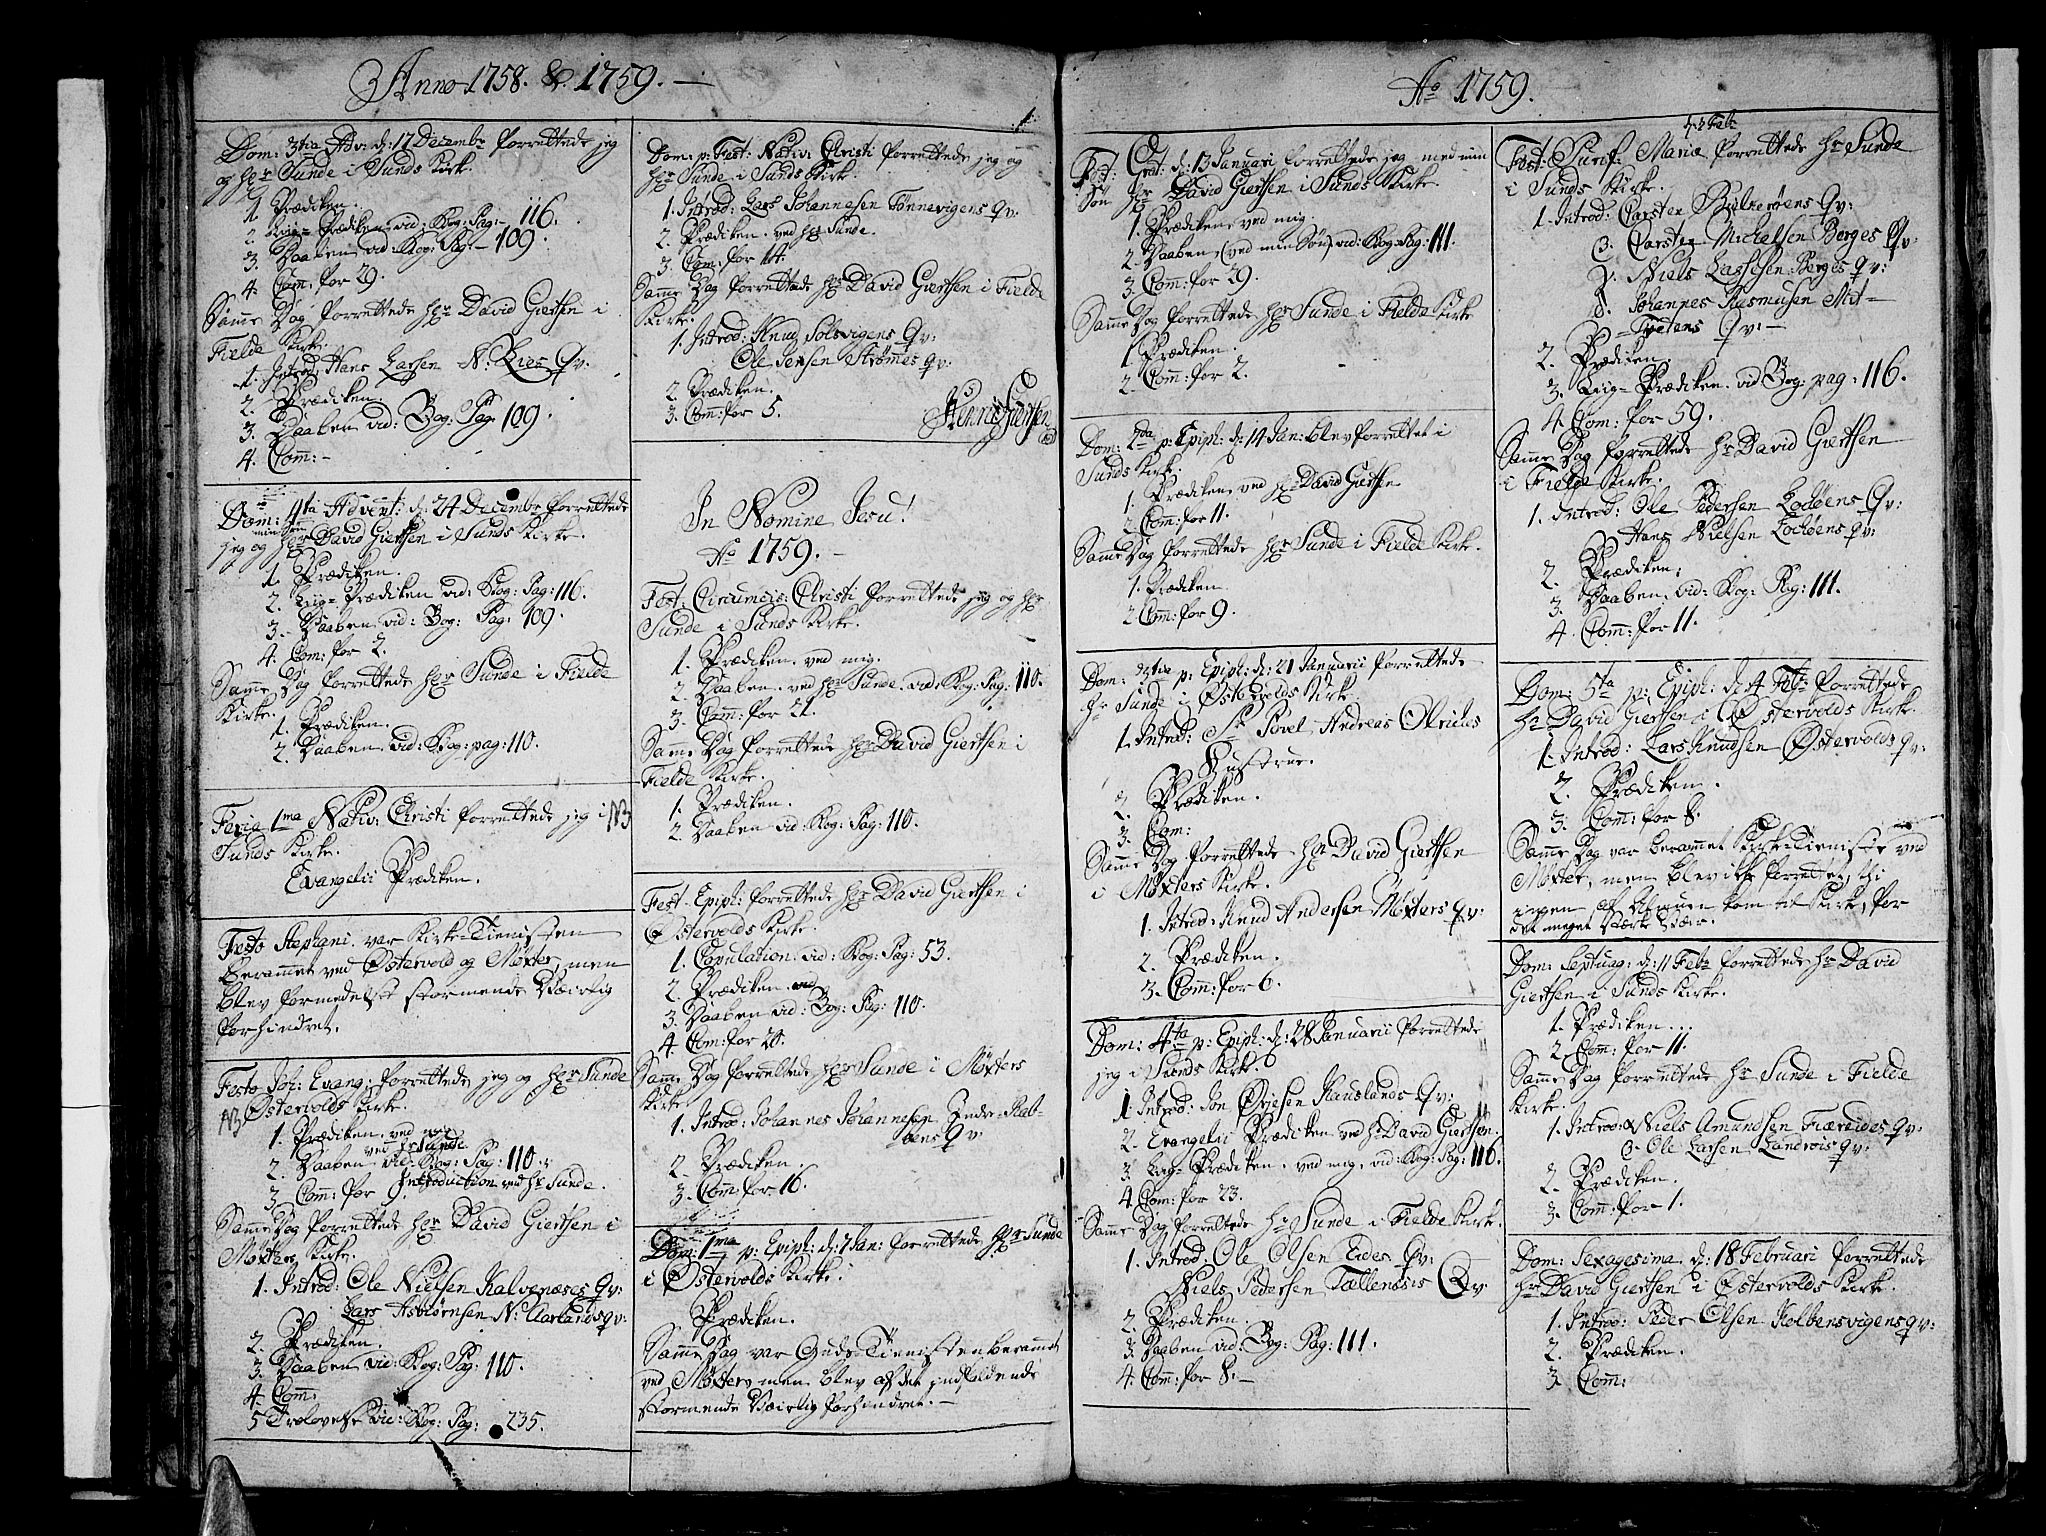 Anno 1758. & 1759. —
Dom: 3tia Adv: d: 17 Decembr forrettede jeg
og Hr Sunde i Sunds Kirk.
1. Prædiken.
2. Liig-Prædiken vid: Kog: Pag: 116.
3. Daaben vid: Kog: Pag: 109.
4. Com: for 29.
Samme Dag forrettede Hr David Giertsen i
Fielde Kirke.
1. Introd: Hans Larsen N: Lies Qv:
2. Prædiken.
3. Daaben vid: Bog: Pag: 109.
4. Com: —
Dom: 4ta Advent: d: 24 Decembr forrettede
jeg og min Søn Hr David Giertsen i Sunds Kirke.
1. Prædiken.
2. Liig-Prædiken vid: Kog: Pag: 116.
3. Daaben vid: Bog: Pag: 109.
4. Com: for 2.
Samme Dag forrettede Hr Sunde i Fielde
Kirke.
1. Prædiken.
2. Daaben vid: Kog: pag: 110.
Feria 1ma Nativ: Christi forrettede jeg i NB
Sunds Kirke.
Evangelii Prædiken.
Festo Stephani var Kirke-Tienisten
berammet ved Østervold og Møxter, men
blev formedelst stormende Væirlig
forhindret.
Festo Joh: Evang: forrettede jeg og Hr Sunde
NB Østervolds Kirke.
1. Prædiken ved mig
ved Hr Sunde
2. Daaben vid: Kog: Pag: 110.
3. Com: for 9. Introduction ved Hr Sunde.
Samme Dag forrettede Hr David Giertsen i
Møxter Kirke.
1. Introd: Ole Nielsen Kalvenæses Qv:
Lars Asbiørnsen N: Aarlands qv:
2. Prædiken.
3. Daaben vid: Kog: Pag: 110.
4. Com:
5. Trolovelse vid: Kog: Pag: 235.
1.
Dom: p: Fest: Nativ: Christi forrettede jeg og
Hr Sunde i Sunds Kirke.
1. Introd: Lars Johannesen Tønnevigens Qv:
2. Prædiken ved Hr Sunde.
3. Com: for 14.
Samme Dag forrettede Hr David Giertsen i Fielde
Kirke.
1. Introd: Knud Solsvigens Qv:
Ole Jensen Strømmes qv:
2. Prædiken.
3. Com: for 5.
In Nomine Jesu!
Ao 1759. —
Fest: Circumcis: Christi forrettede jeg og Hr
Sunde i Sunds Kirke.
1. Prædiken ved mig.
2. Daaben ved Hr Sunde vid: Kog: Pag: 110.
3. Com: for 21.
Samme Dag forrettede Hr David Giertsen i
Fielde Kirke.
1. Prædiken.
2. Daaben vid: Kog: Pag: 110.
Fest: Epiph: forrettede Hr David Giertsen i
Østervolds Kirke.
1. Copulation vid: Kog: Pag: 53.
2. Prædiken
3. Daaben vid: Bog: Pag: 110.
4. Com: for 20.
Samme Dag forrettede Hr Sunde i Møxters
Kirke.
1. Introd: Johannes Johannesen Indre-Rab-
bens Qv:
2. Prædiken.
3. Com: for 16.
Dom: 1ma p: Epiph: d: 7 Jan: forrettede Hr Sunde
i Østervolds Kirke.
Prædiken.
Samme Dag var Guds Tienisten berammet
ved Møxter men blev af det indfaldende
stormende Væirlig forhindret. —
Ao 1759.
Fest: Grat: d: 13 Januari forrettede jeg med min
Søn Hr David Giertsen i Sunds Kirke.
1. Prædiken ved mig.
2. Daaben (ved min Søn) vid: Kog: Pag: 111.
3. Com: for 29.
Samme Dag forrettede Hr Sunde i Fielde Kirke
1. Prædiken.
2. Com: for 2.
Dom: 2da p: Epiph: d: 14 Jan: blev forrettet i
Sunds Kirk:
1. Prædiken ved Hr David Giertsen
2. Com: for 11.
Samme Dag forrettede Hr Sunde i Fielde Kirke.
1. Prædiken
2. Com: for 9.
Dom: 3tia p: Epiph: d: 21 Januarii forrettede
Hr Sunde i Østervolds Kirke.
1. Introd: Sr Povel Andreas Olrichs
Hustrue.
2. Prædiken.
3. Com:
Samme Dag forrettede Hr David Giertsen
i Møxters Kirke.
1. Introd: Knud Andersen Møxters Qv:
2. Prædiken.
3. Com: for 6.
Dom: 4ta p: Epiph: d: 28 Januarii forrettede
jeg i Sunds Kirk.
1. Introd: Jon Øvjesen Hauslands Qv:
2. Evangelii Prædiken ved Hr David Giertsen.
3. Liig-Prædiken ved mig, vid: Kog: Pag: 116.
4. Com: for 23.
Samme Dag forrettede Hr Sunde i Fielde Kirk.
1. Introd: Ole Olsen Eides Qv:
Niels Pedersen Tællenæsis Qv
2. Prædiken.
3. Daaben vid: Bog: Pag: 111.
4. Com: for 8. —
d: 2 Febr
Fest: Purif: Mariæ forrettede Hr Sunde
i Sunds Kirke.
1. Introd: Carsten Qv:
Carsten Michelsen Berges Qv:
Niels Lassesen Berges qv:
Johannes Rasmusen Mit-
Tvetens Qv: —
2. Prædiken.
3. Liig-Prædiken vid Bog: pag: 116.
4. Com: for 59.
Samme Dag forrettede Hr David Giertsen
i Fielde Kirke.
1. Introd: Ole Pedersen Lodøens Qv:
Hans Nielsen Lodøens qv:
2. Prædiken:
3. Daaben vid: Kog: Pag: 111.
4. Com: for 11.
Dom: 5ta p: Epiph: d: 4 Febr forrettede
Hr David Giertsen i Østervolds Kirke.
1. Introd: Lars Knudsen Østervolds qv:
2. Prædiken.
3. Com: for 8.
Samme Dag var berammet Kirke-Tieniste ved
Møxter, men blev ikke forrettet, thi
ingen af Almuen kom til Kirke, for
det meget stærke Væir.
Dom: Septuag: d: 11 Febr forrettede Hr David
Giertsen i Sunds Kirke.
1. Prædiken...
2. Com: for 11.
Samme Dag forrettede Hr Sunde i Fielde
Kirke.
1. Introd: Niels Amundsen Qv:
Ole Larsen Landrøis qv:
2. Prædiken.
3. Com: for 1.
Dom: Sexagesima d: 18 Februari forrettede
Hr David Giertsen i Østervolds Kirke.
1. Introd: Peder Olsen Kolbensvigens qv:
2. Prædiken.
3. Com: